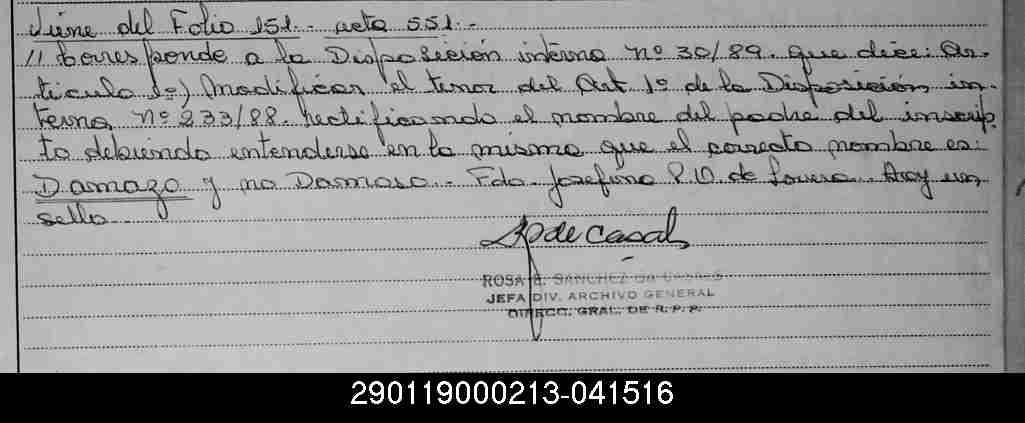 Viene del Folio 151.- acta 551.-
// Corresponde a la Disposición interna nº 30/89. que dice: Ar-
tículo 1º) Modificar el tenor del Art 1º de la Disposición in-
terna nº 233/88. rectificando el nombre del padre del inscrip-
to debiendo entenderse en la misma que el correcto nombre es:
Damazo y no Damaso.- Fdo. Josefina P.O. de Hay un
sello.-
de Casals
ROSA E. SANCHEZ DE CASALS
JEFA DIV. ARCHIVO GENERAL
DIRECC. GRAL. DE R. P. P.
290119000213-041516